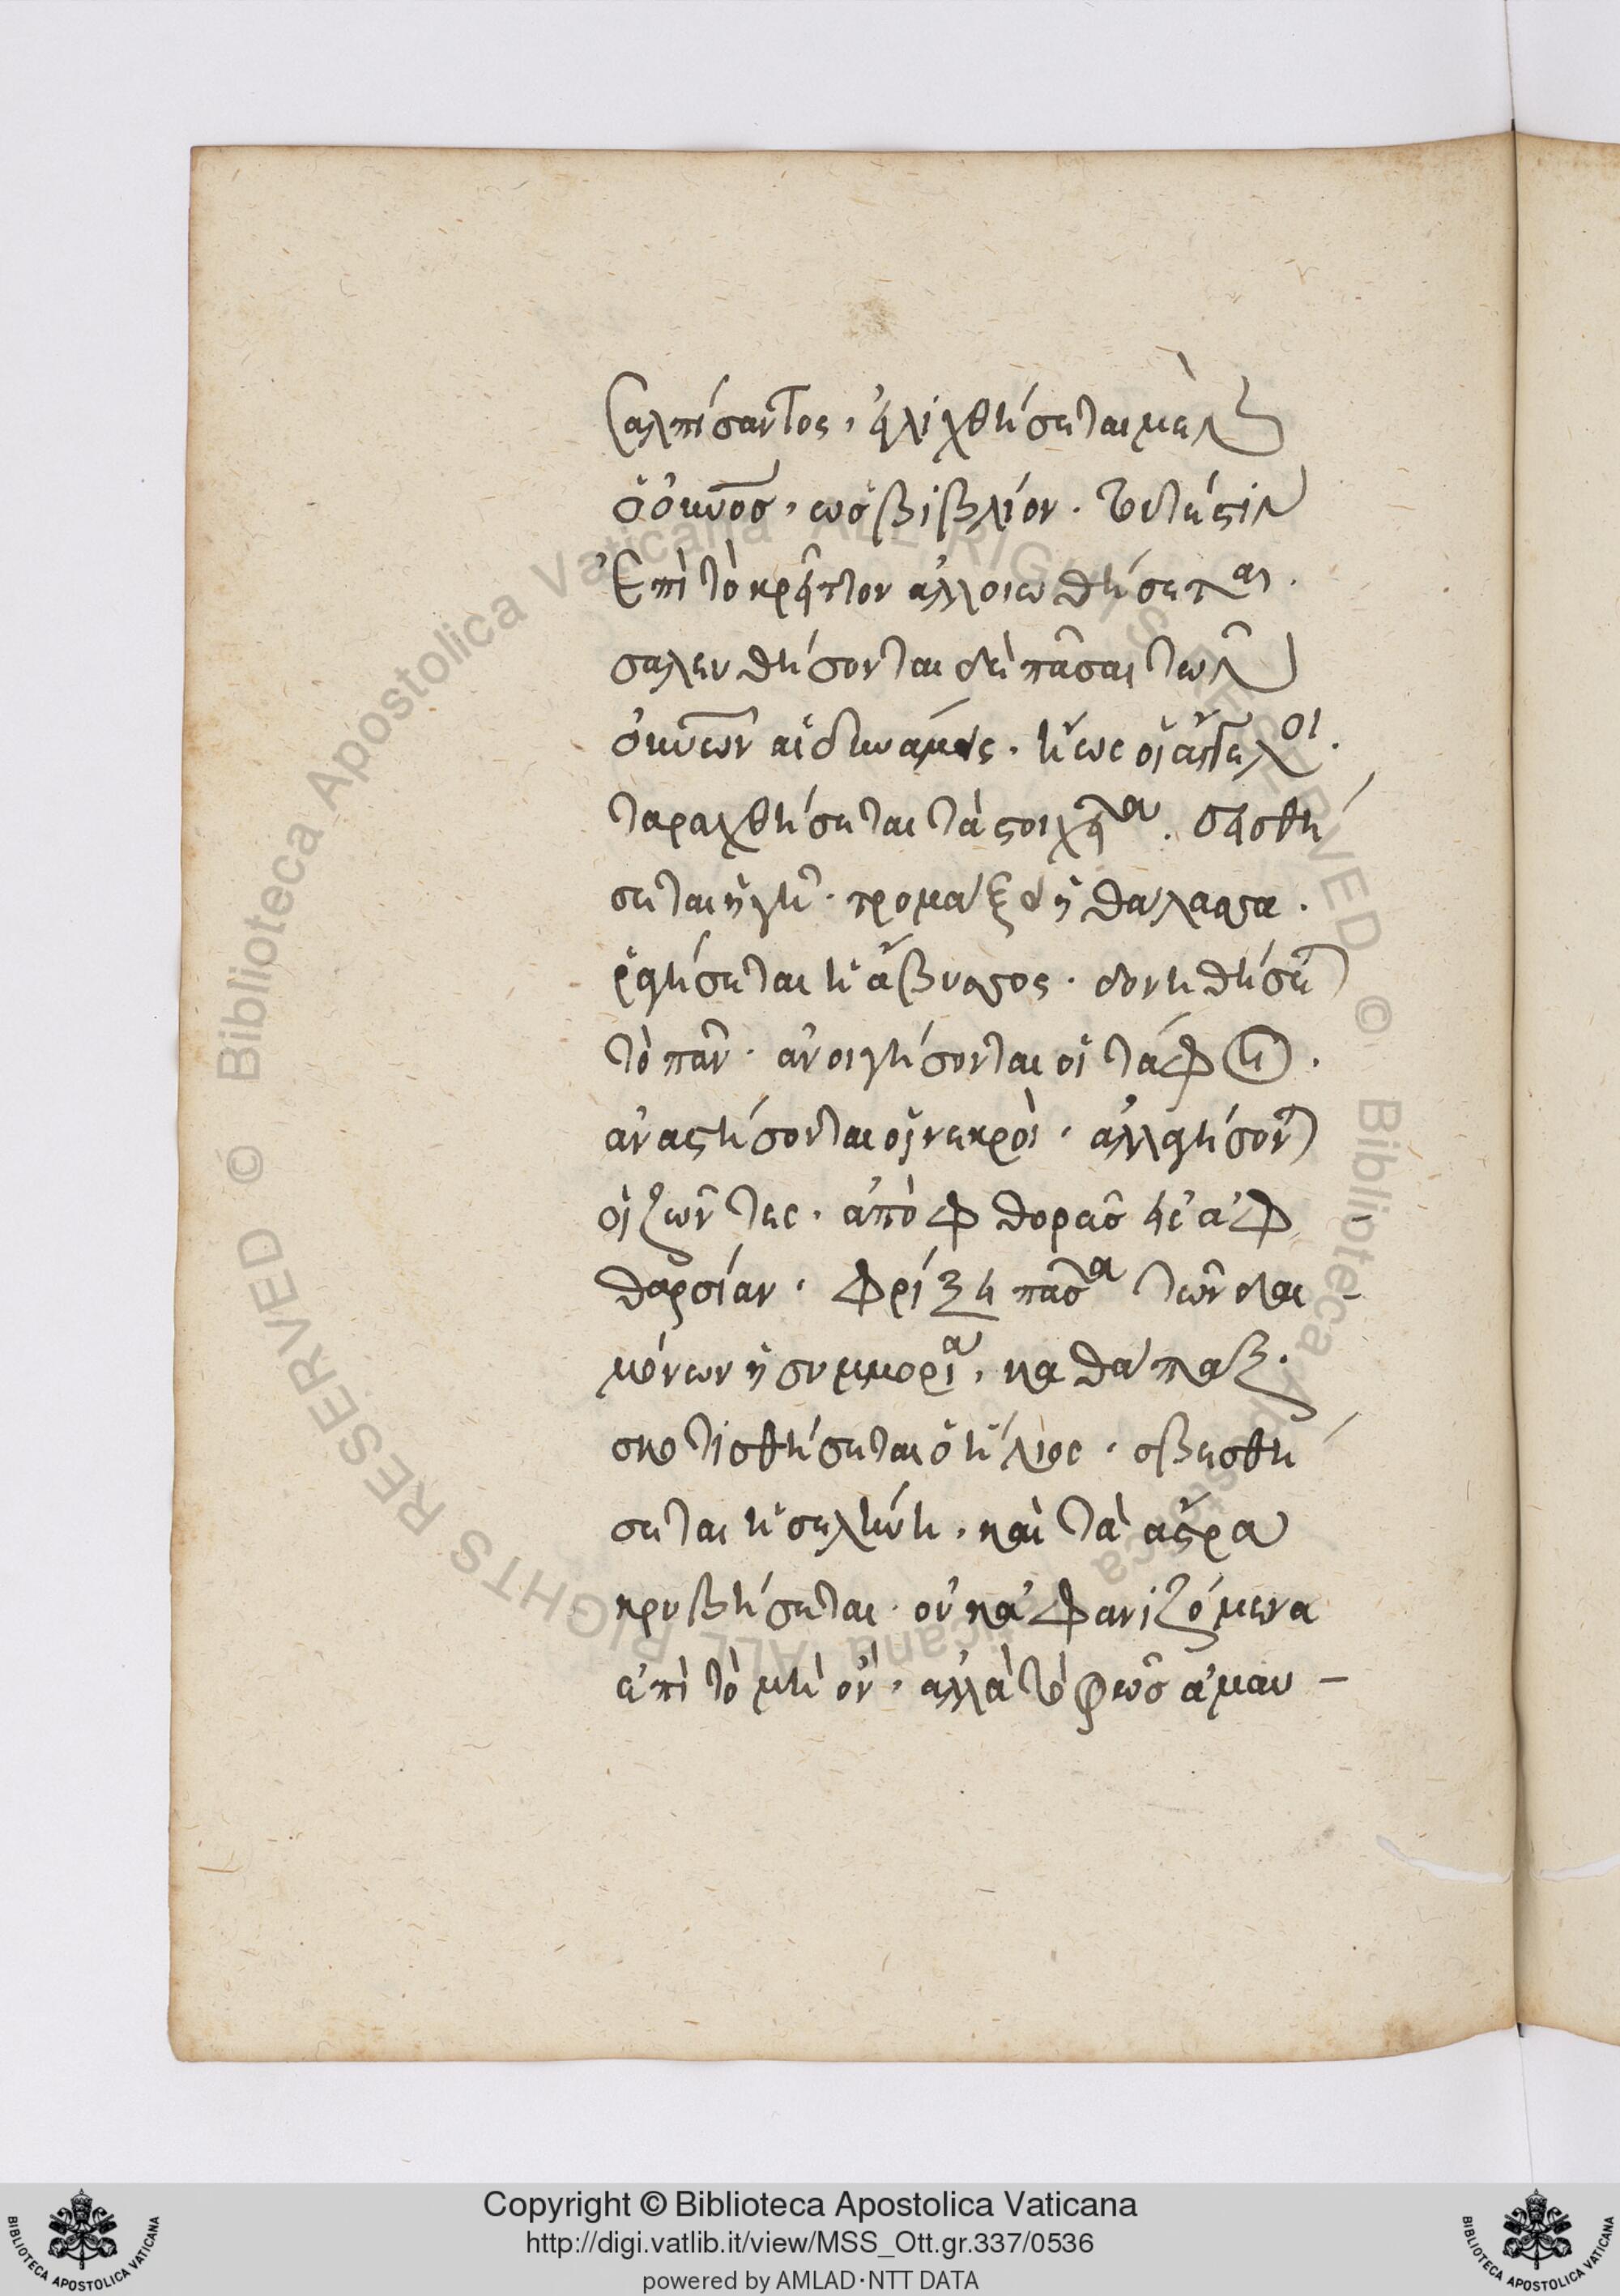 σαλπίσαντος, εἱλιχθήσεται μὲν
ὁ οὐνος, ὡς βιβλίον. τουτέστιν
ἐπὶ τὸ κρεῖττον ἀλλοιωθήσεται.
σαλευθήσονται δὲ πᾶσαι τῶν
οὐνῶν αἱ δυνάμεις. ἤως οἱ ἄγγελοι.
ταραχθήσεται τὰ στοιχεῖα. σεισθή
σεται ἡ γῆ. τρομάξει ἡ θάλασσα.
ῥαγήσεται ἡ ἄβυσσος. δονηθήσεται
τὸ πᾶν. ἀνοιγήσονται οἱ τάφοι.
ἀναστήσονται οἱ νεκροὶ. ἀλλαγήσονται
οἱ ζῶντες. ἀπὸ φθορᾶς εἰς ἀφ
θαρσίαν. φρίξει πᾶσα τῶν δαι-
μόνων ἡ συμμορία. καθάπαξ.
σκοτισθήσεται ὁ ἥλιος. σβεσθή
σεται ἡ σελήνη, καὶ τὰ ἄστρα
κρυβήσεται. οὐκ ἀφανιζόμενα
ἐπὶ τὸ μὴ ὂν, ἀλλὰ τὸ φῶς ἀμαυ-
Copyright © Biblioteca Apostolica Vaticana
http://digi.vatlib.it/view/MSS_Ott.gr.337/0536
powered by AMLAD·NTT DATA
BIBLIOTECA APOSTOLICA VATICANA
BIBLIOTECA APOSTOLICA VATICANA
© Biblioteca Apostolica Vaticana ALL RIGHTS RESERVED © Biblioteca Apostolica Vaticana ALL RIGHTS RESERVED